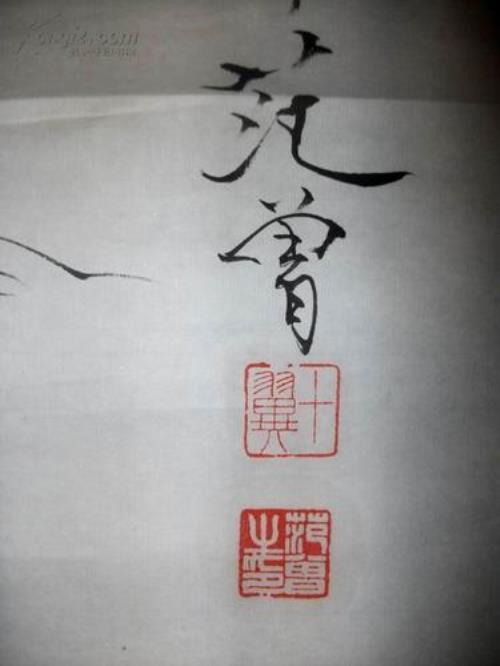 范曾
十翼
范曾之印
Kongfz.com